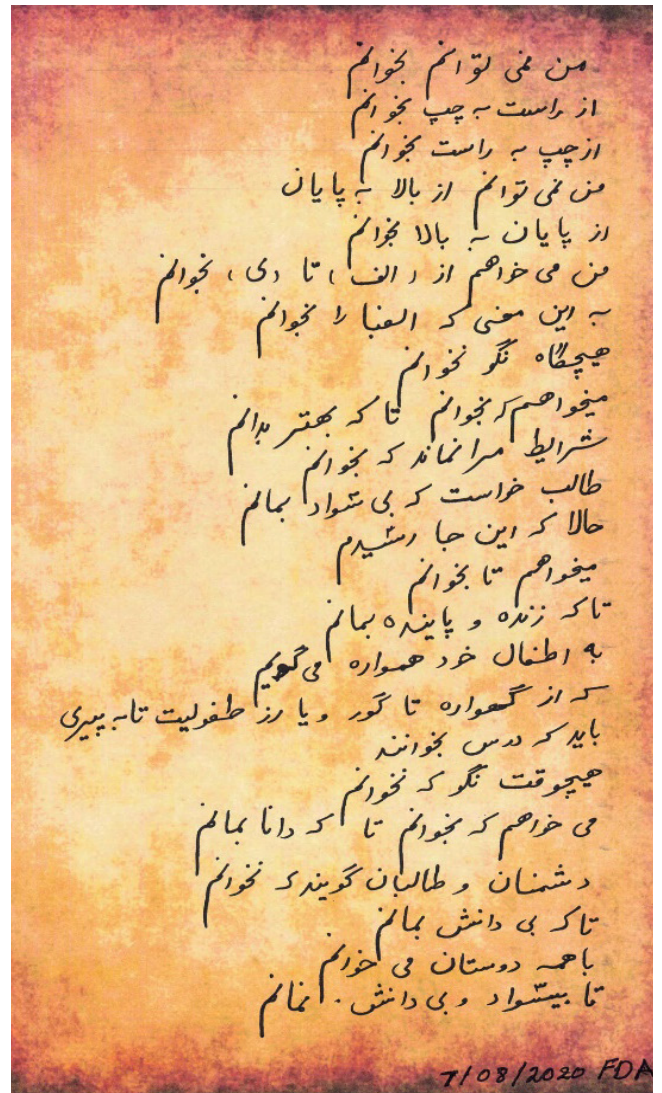 من نمی توانم بخوانم
از راست به چپ بخوانم
از چپ به راست بخوانم
من نمی توانم از بالا به پایان
از پایان به بالا بخوانم
من می خواهم از (الف) تا (ی) بخوانم
به این معنی که الفبا را بخوانم
هیچگاه نگو نخوانم
میخواهم که بخوانم تا که بهتر بدانم
شرایط مرا نماند که بخوانم
طالب خواست که بی سواد بمانم
حالا که این جا رسیدم
میخواهم تا بخوانم
تا که زنده و پاینده بمانم
به اطفال خود همواره می گویم
که از گهواره تا گور و یا از طفولیت تا به پیری
باید که درس بخوانند
هیچوقت نگو که نخوانم
می خواهم که بخوانم تا که دانا بمانم
دشمنان و طالبان گویند که نخوانم
تا که بی دانش بمانم
با همه دوستان می خوانم
تا بیسواد و بی دانش . نمانم
7/08/2020 FDA